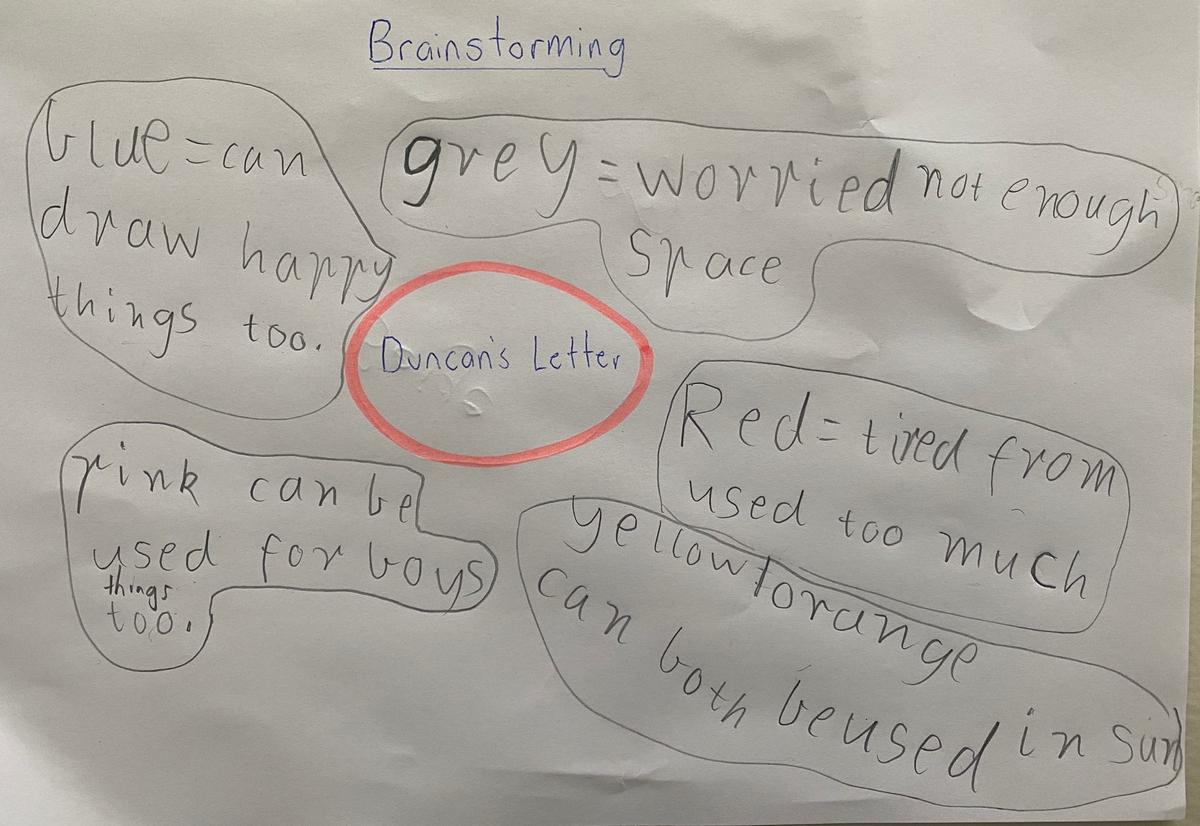 Brainstorming
blue = can
draw happy
things too.
grey = worried not enough
space
Duncan's Letter
Red = tired from
used too much
pink can be
used for boys
things
too.
yellow + orange
can both be used in sun